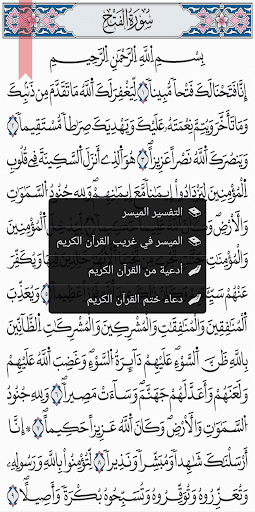 سُورَةُ الفَتۡحِ
بِسۡمِ ٱللَّهِ ٱلرَّحۡمَٰنِ ٱلرَّحِيمِ
إِنَّا فَتَحۡنَا لَكَ فَتۡحٗا مُّبِينٗا ١ لِّيَغۡفِرَ لَكَ ٱللَّهُ مَا تَقَدَّمَ مِن ذَنۢبِكَ
وَمَا تَأَخَّرَ وَيُتِمَّ نِعۡمَتَهُۥ عَلَيۡكَ وَيَهۡدِيَكَ صِرَٰطٗا مُّسۡتَقِيمٗا ٢
وَيَنصُرَكَ ٱللَّهُ نَصۡرًا عَزِيزًا ٣ هُوَ ٱلَّذِيٓ أَنزَلَ ٱلسَّكِينَةَ فِي قُلُوبِ
ٱلۡمُؤۡمِنِينَ لِيَزۡدَادُوٓاْ إِيمَٰنٗا مَّعَ إِيمَٰنِهِمۡۗ وَلِلَّهِ جُنُودُ ٱلسَّمَٰوَٰتِ
وَٱلۡأَرۡضِۚ وَكَانَ ٱللَّهُ
ٱلۡمُؤۡمِنِينَ
التفسير الميسر
وَٱلۡمُؤۡمِنَٰتِ
الميسر في غريب القرآن الكريم
أدعية من القرآن الكريم
دعاء ختم القرآن الكريم
عَنۡهُمۡ سَيِّـَٔ
وَيُعَذِّبَ
ٱلۡمُنَٰفِقِينَ وَٱلۡمُنَٰفِقَٰتِ وَٱلۡمُشۡرِكِينَ وَٱلۡمُشۡرِكَٰتِ ٱلظَّآنِّينَ
بِٱللَّهِ ظَنَّ ٱلسَّوۡءِۚ عَلَيۡهِمۡ دَآئِرَةُ ٱلسَّوۡءِۖ وَغَضِبَ ٱللَّهُ عَلَيۡهِمۡ
وَلَعَنَهُمۡ وَأَعَدَّ لَهُمۡ جَهَنَّمَۖ وَسَآءَتۡ مَصِيرٗا ٦ وَلِلَّهِ جُنُودُ
ٱلسَّمَٰوَٰتِ وَٱلۡأَرۡضِۚ وَكَانَ ٱللَّهُ عَزِيزًا حَكِيمًا ٧ إِنَّآ
أَرۡسَلۡنَٰكَ شَٰهِدٗا وَمُبَشِّرٗا وَنَذِيرٗا ٨ لِّتُؤۡمِنُواْ بِٱللَّهِ وَرَسُولِهِۦ
وَتُعَزِّرُوهُ وَتُوَقِّرُوهُۚ وَتُسَبِّحُوهُ بُكۡرَةٗ وَأَصِيلًا ٩